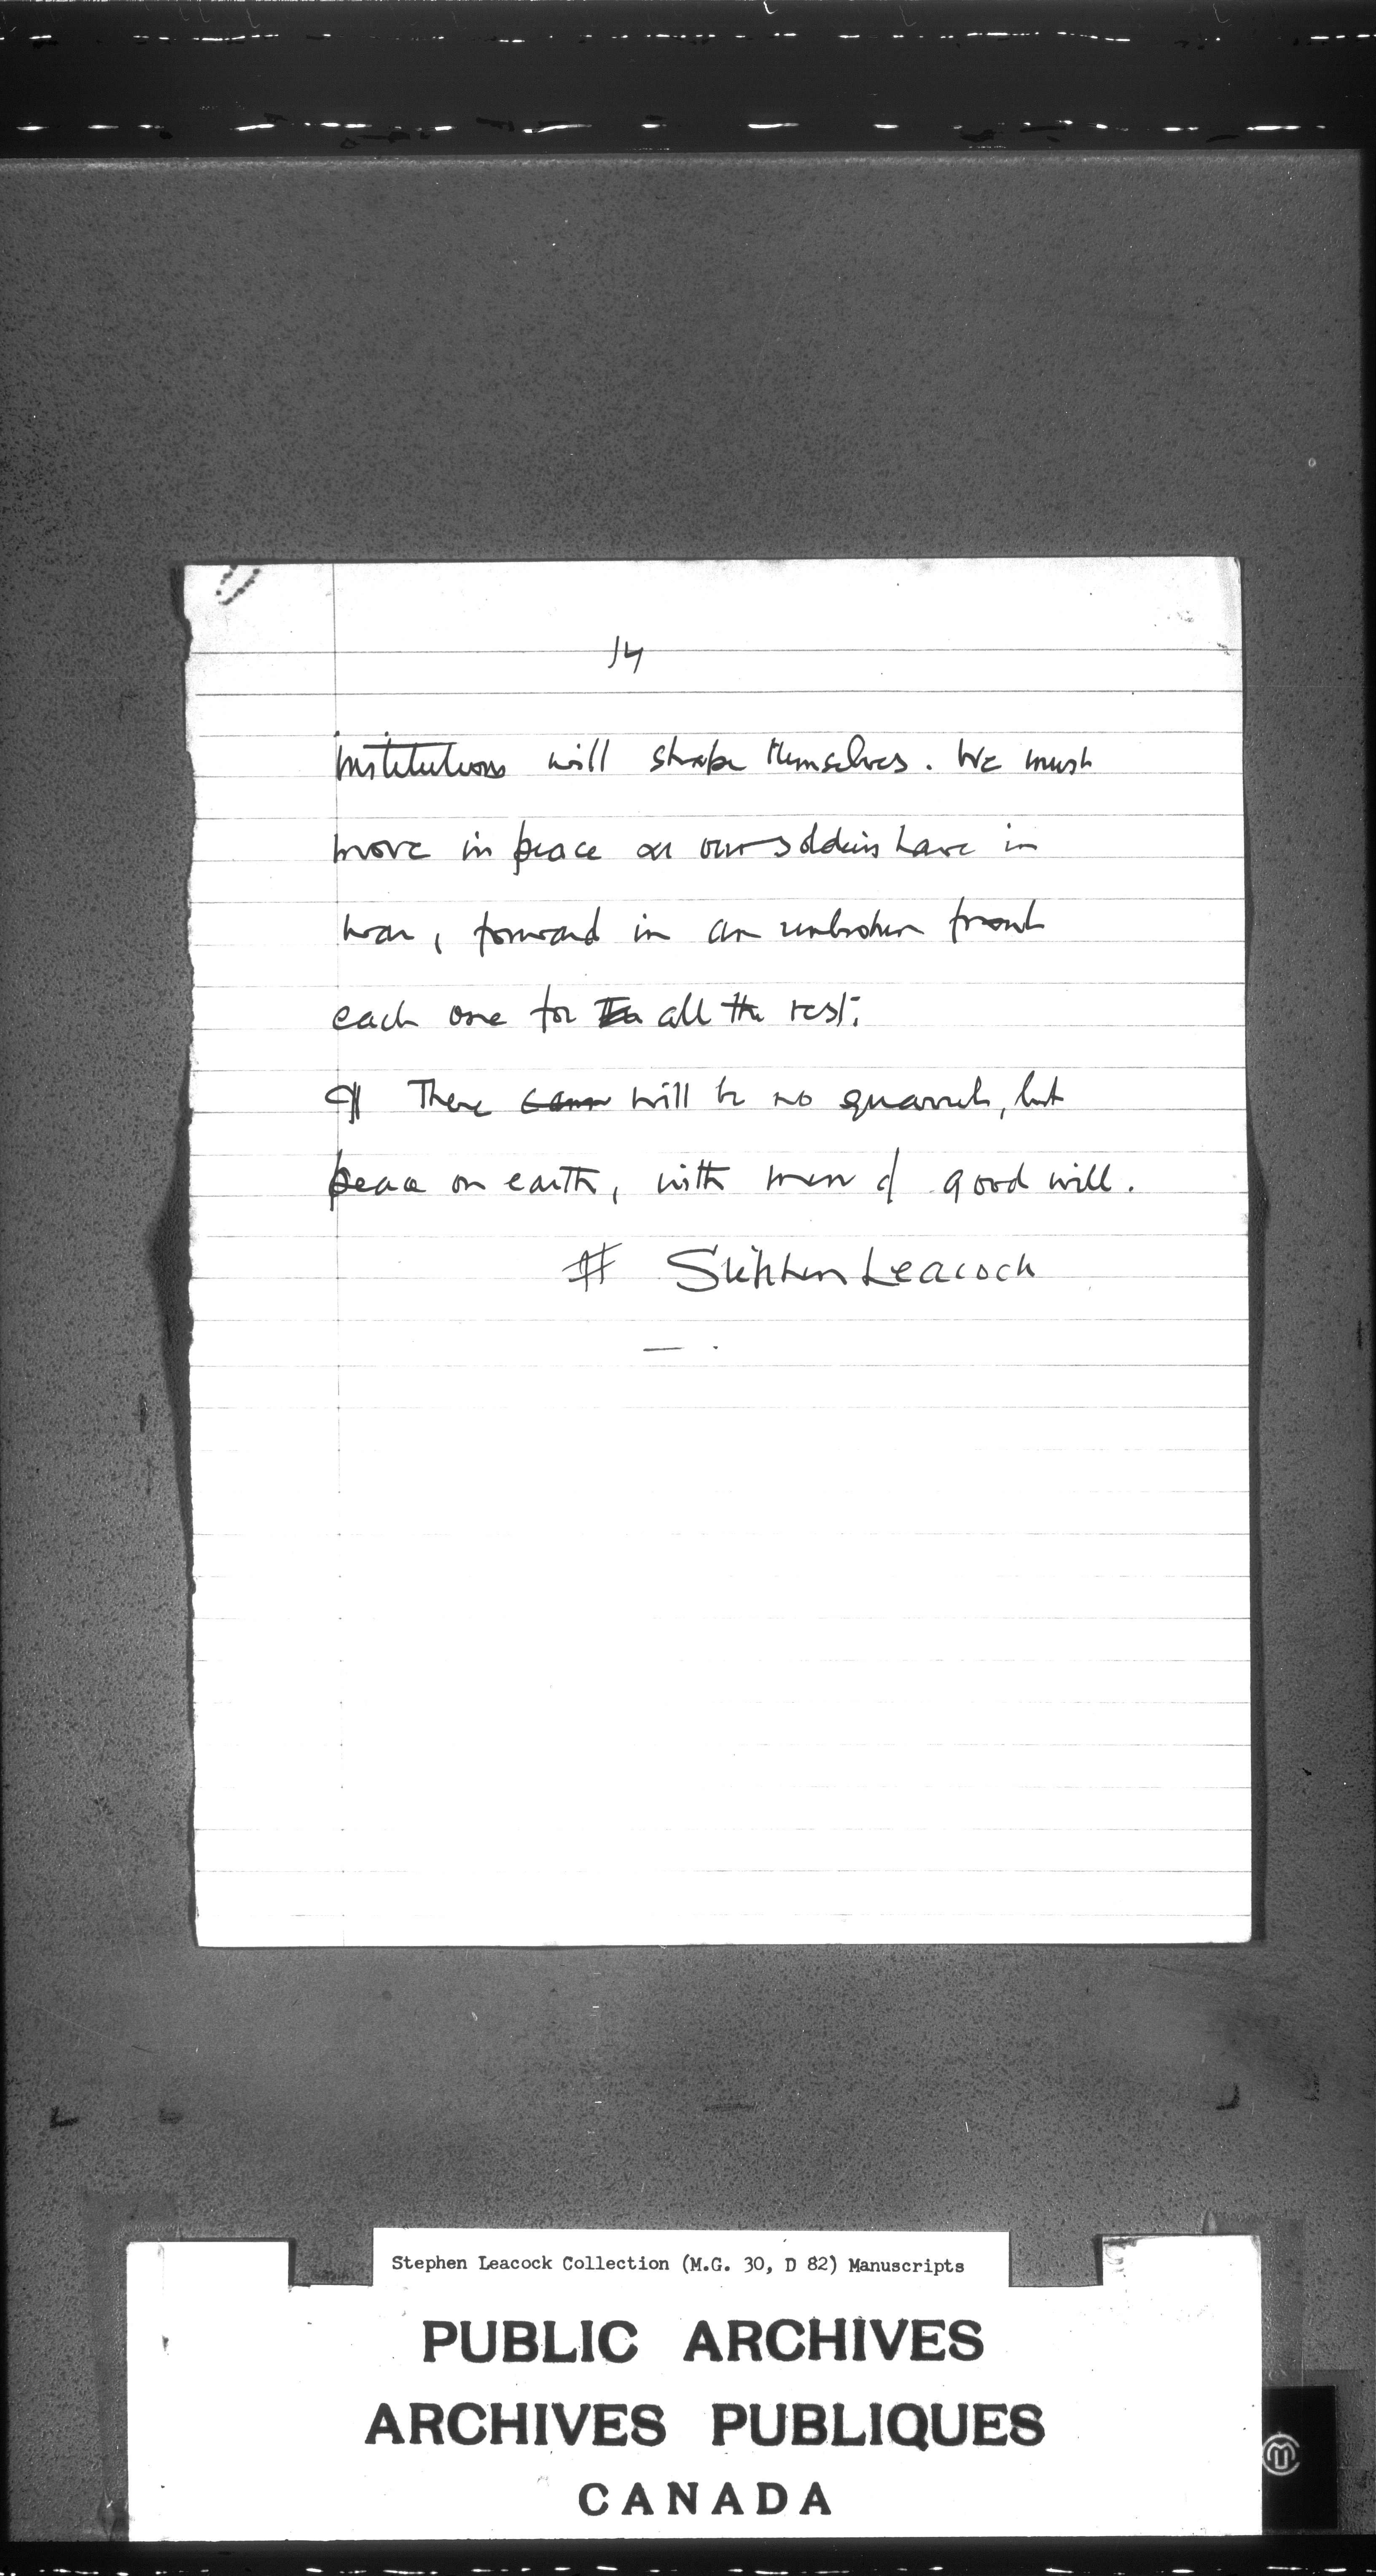 14
institutions will shape themselves. We must
move in peace as our soldiers have in
war, forward in an unbroken front
each one for all the rest.
¶ There will be no quarrels, but
peace on earth, with men of good will.
# Stephen Leacock
Stephen Leacock Collection (M.G. 30, D 82) Manuscripts
PUBLIC ARCHIVES
ARCHIVES PUBLIQUES
CANADA